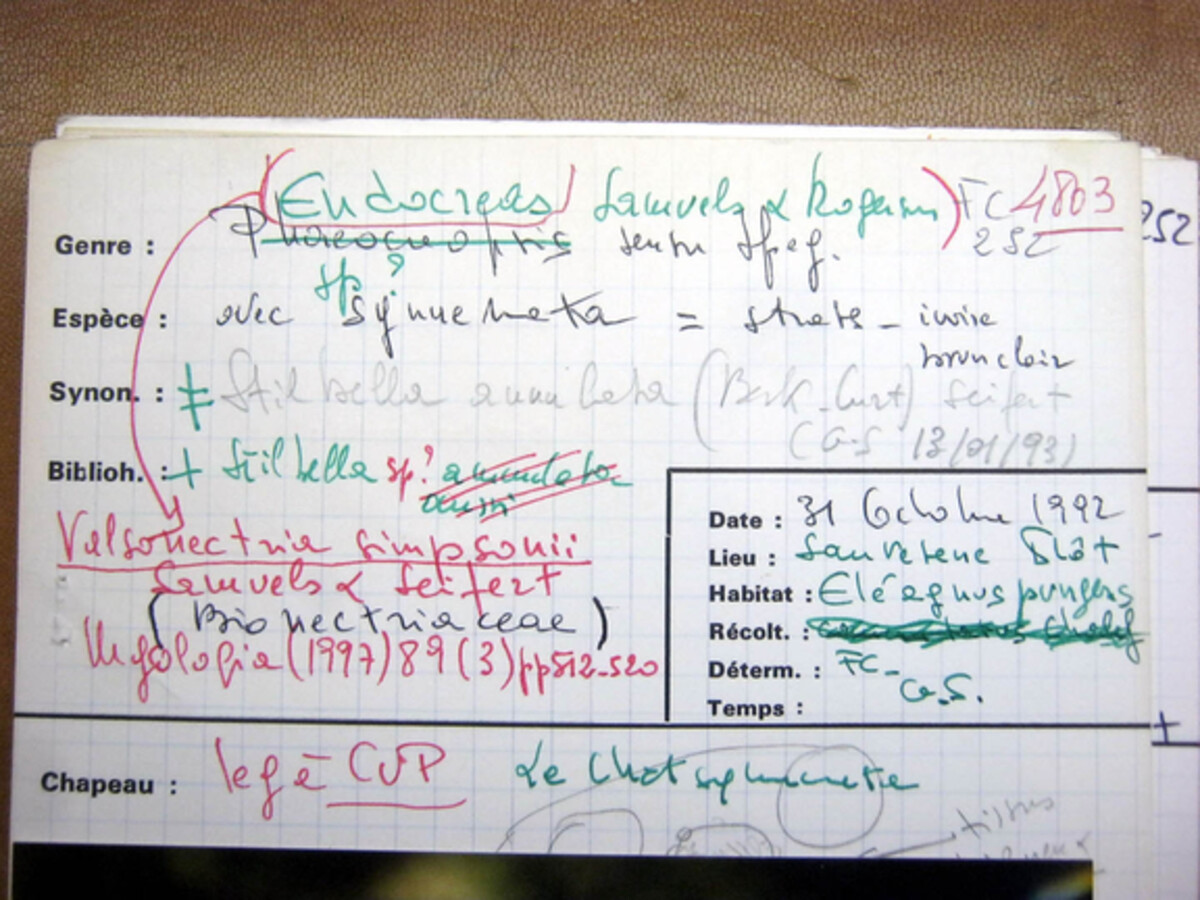 (Endocreas) Samuels & Rogerson) FC 4803
Genre : Phaeocreopsis sensu Speg. 252
sp ?
Espèce : avec synnemata = strate - ivoire
brun clair
Synon. : ≠ Stilbella annulata (Berk. Curt) Seifert
(G.S 13/01/93)
Biblioh. : + Stilbella sp? annulata
Valsonectria simpsonii
Samuels & Seifert
(Bionectriaceae)
Mycologia (1997) 89 (3) pp 512-520
Date : 31 Octobre 1992
Lieu : Sauveterre
Habitat : Eléagnus pungens
Récolt. :
Déterm. : FC -
G.S.
Temps :
Chapeau : leg à CVP
tissus
252
+